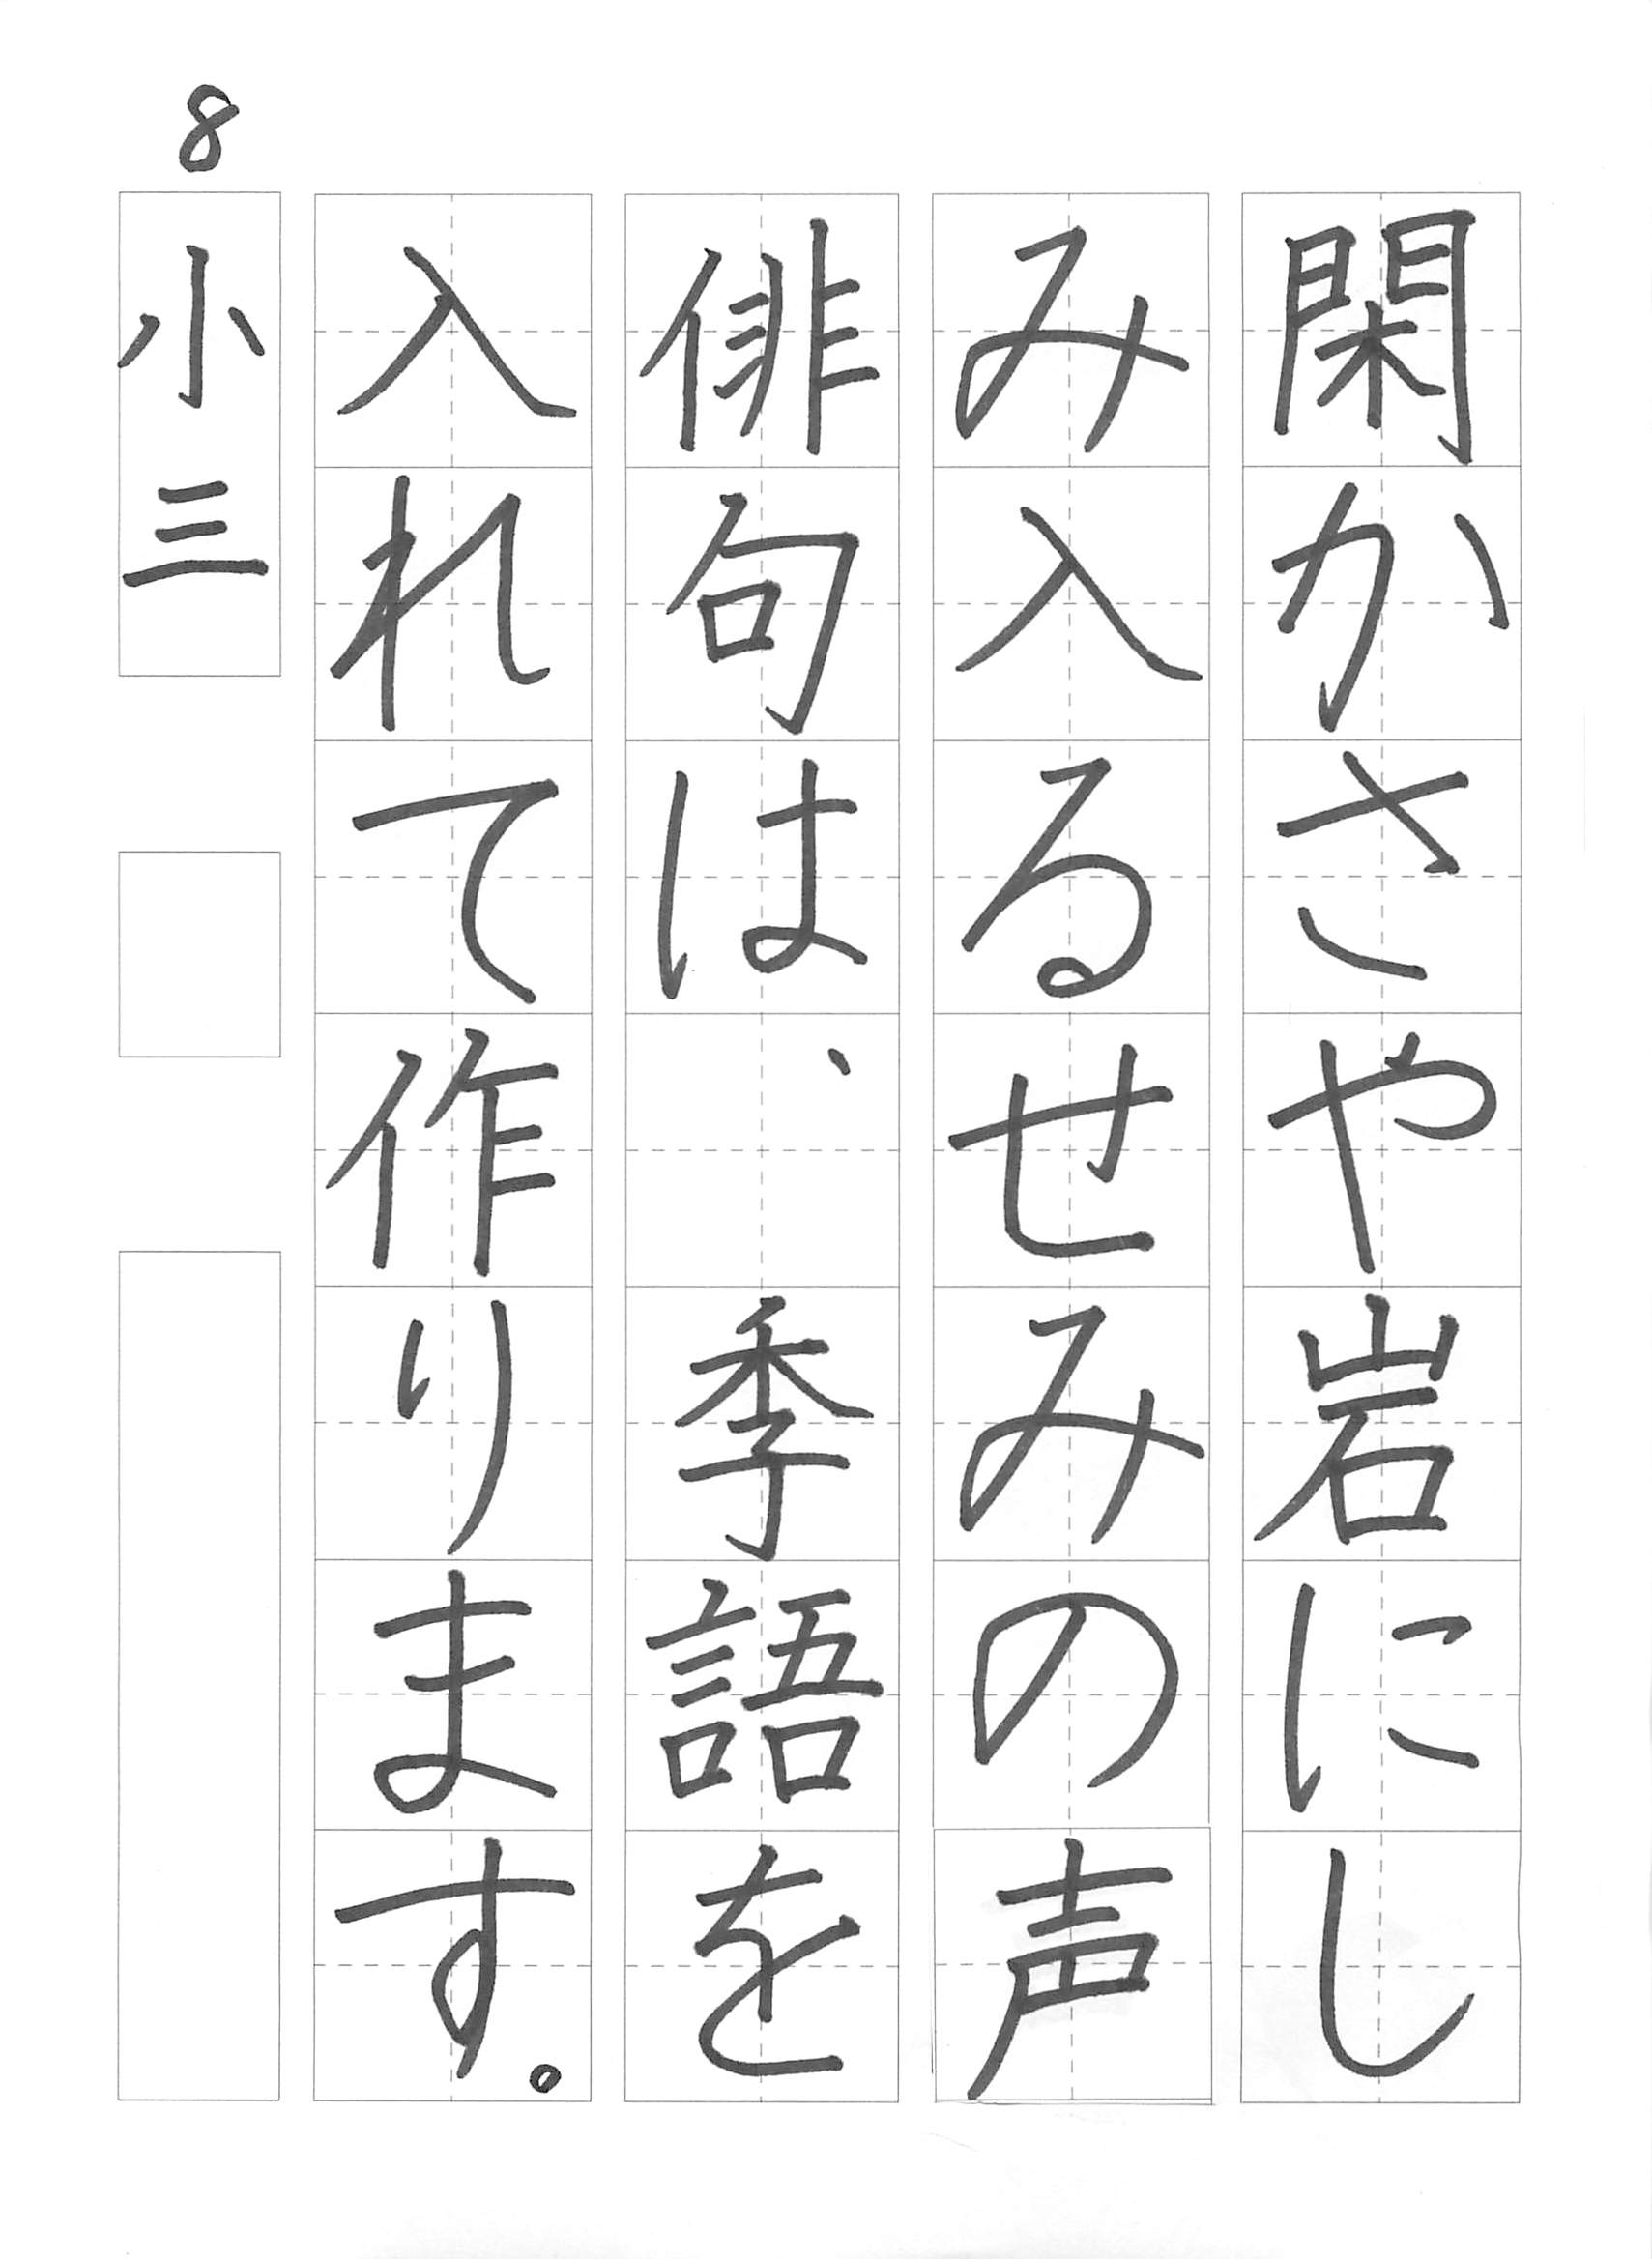 閑かさや岩にし
み入るせみの声
俳句は、季語を
入れて作ります。
小三
8